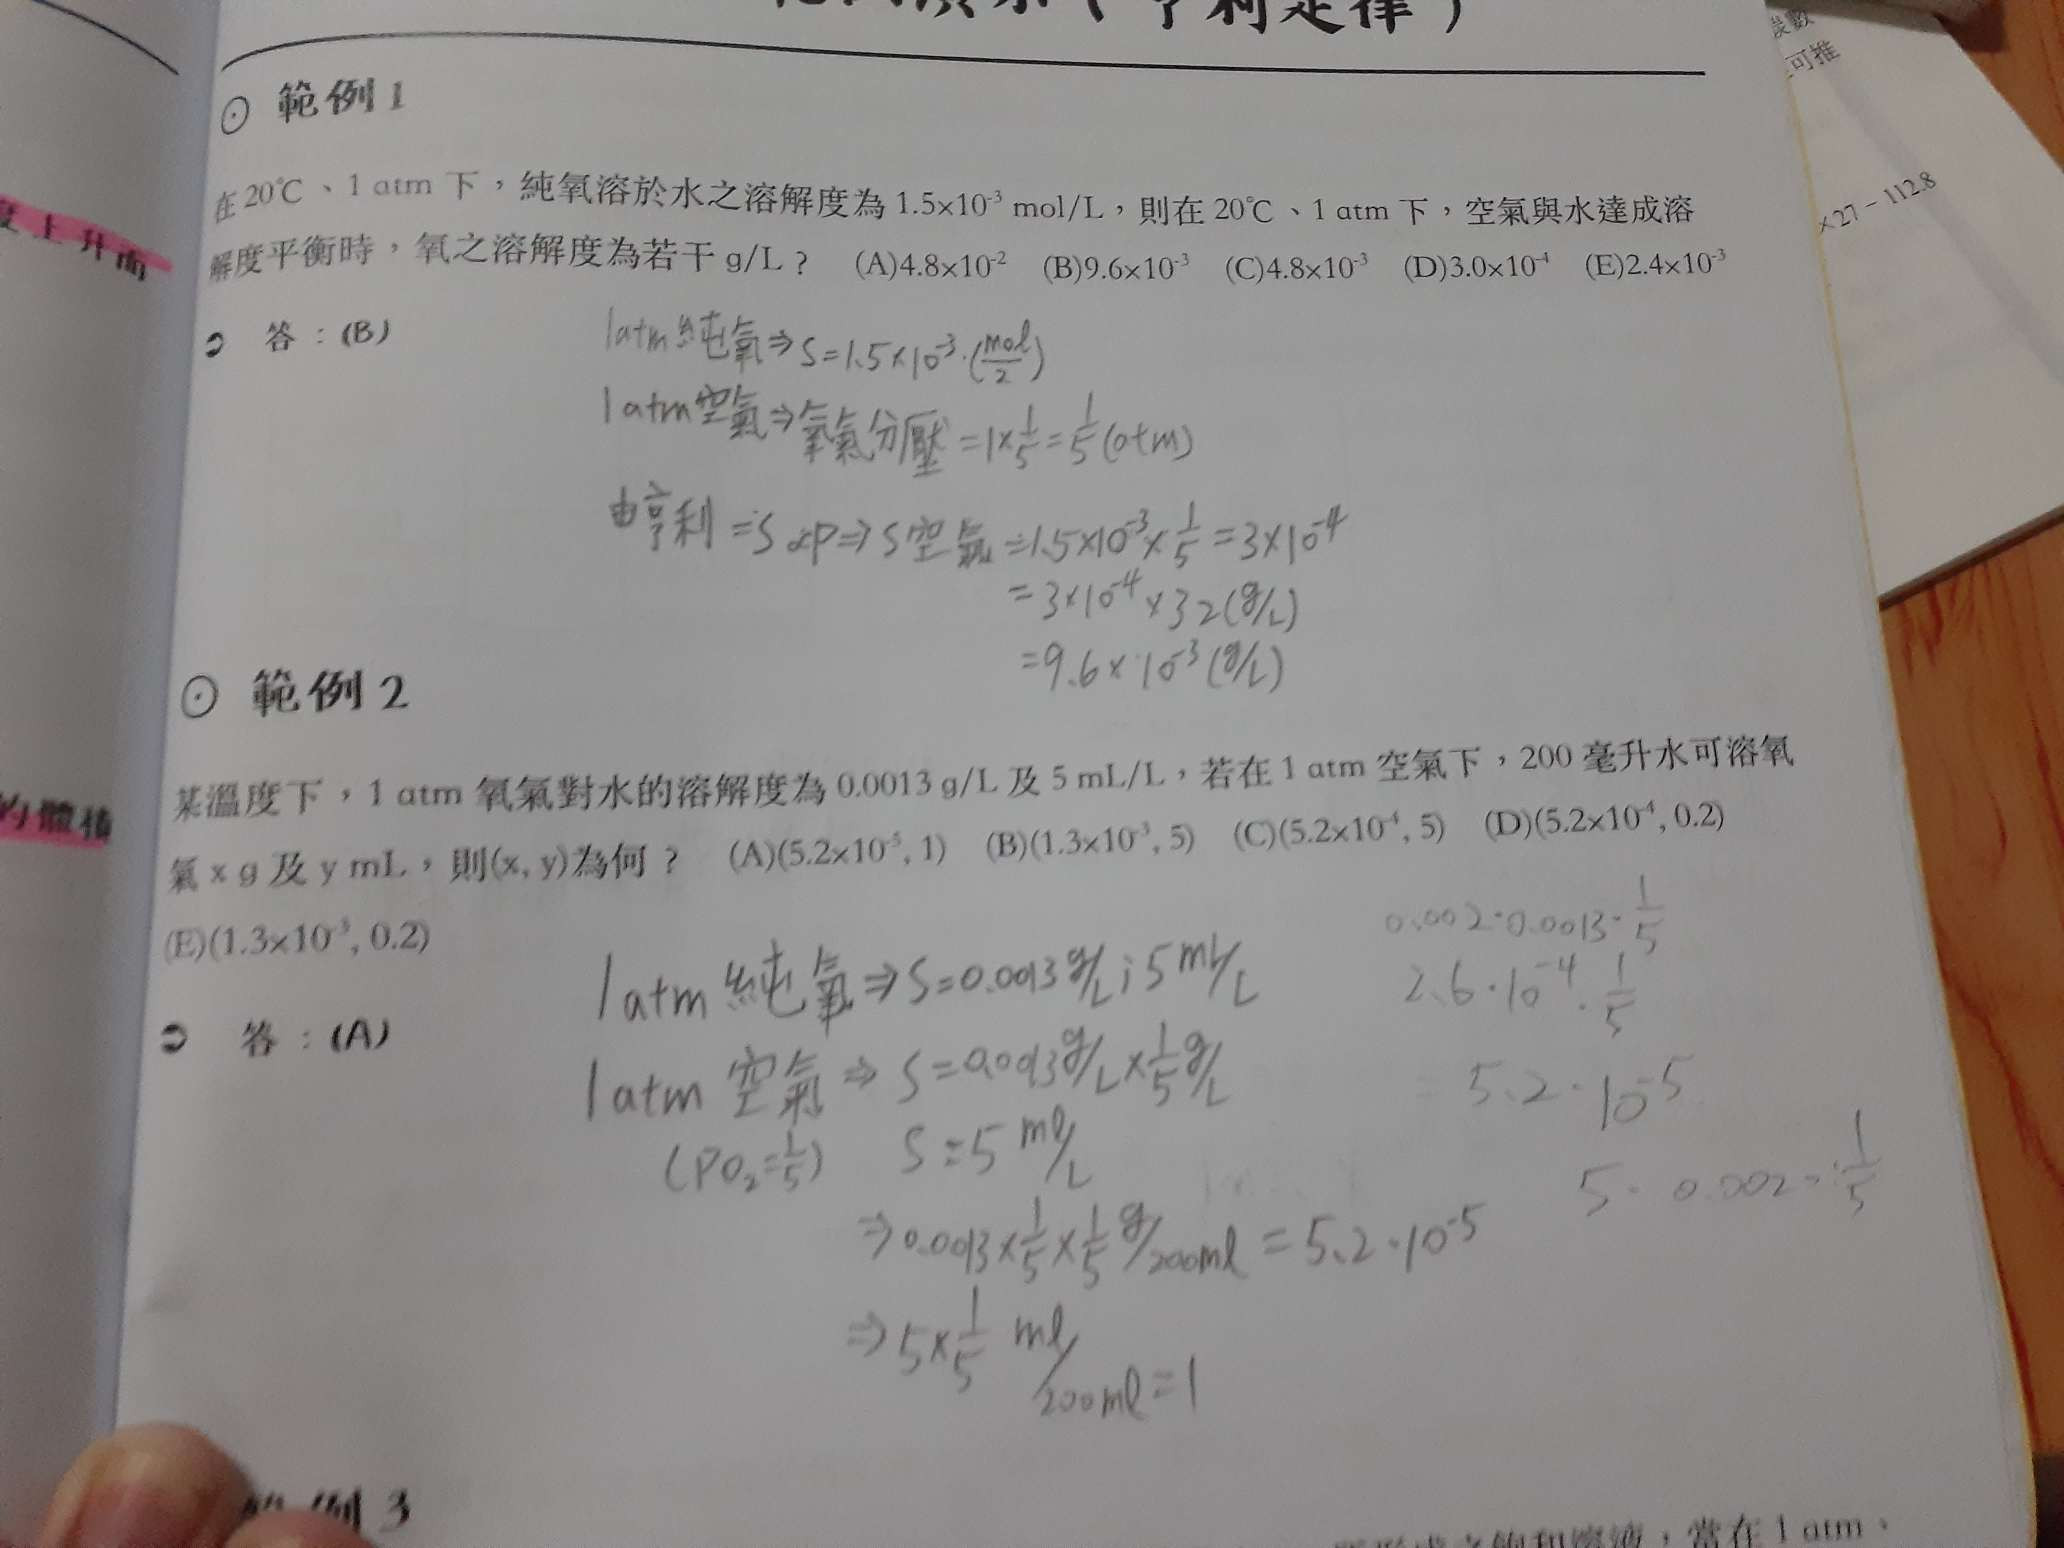 亨利定律)
範例1
在20℃、1 atm下，純氧溶於水之溶解度為1.5×10⁻³ mol/L，則在20℃、1 atm下，空氣與水達成溶
解度平衡時，氧之溶解度為若干g/L？ (A)4.8×10⁻² (B)9.6×10⁻³ (C)4.8×10⁻³ (D)3.0×10⁻⁴ (E)2.4×10⁻³
答：(B)
1atm純氧⇒S=1.5×10⁻³·(mol/2)
1atm空氣⇒氧氣分壓=1×1/5=1/5(atm)
由亨利⇒S∝P⇒S空氣=1.5×10⁻³×1/5=3×10⁻⁴
=3×10⁻⁴×32(g/L)
=9.6×10⁻³(g/L)
範例2
某溫度下，1 atm氧氣對水的溶解度為0.0013 g/L及5 mL/L，若在1 atm空氣下，200毫升水可溶氧
氣x g及y mL，則(x, y)為何？ (A)(5.2×10⁻⁵, 1) (B)(1.3×10⁻³, 5) (C)(5.2×10⁻⁴, 5) (D)(5.2×10⁻⁴, 0.2)
(E)(1.3×10⁻³, 0.2)
答：(A)
1atm純氧⇒S=0.0013g/L；5ml/L
1atm空氣⇒S=0.0013g/L×1/5g/L
(PO₂=1/5) S=5ml/L
⇒0.0013×1/5×1/5g/200ml=5.2·10⁻⁵
⇒5×1/5ml/200ml=1
0.002·0.0013·1/5
2.6·10⁻⁴·1/5
=5.2·10⁻⁵
5·0.002·1/5
範例3
當在1 atm、
度上升而
的體積
可推
×27－112.8